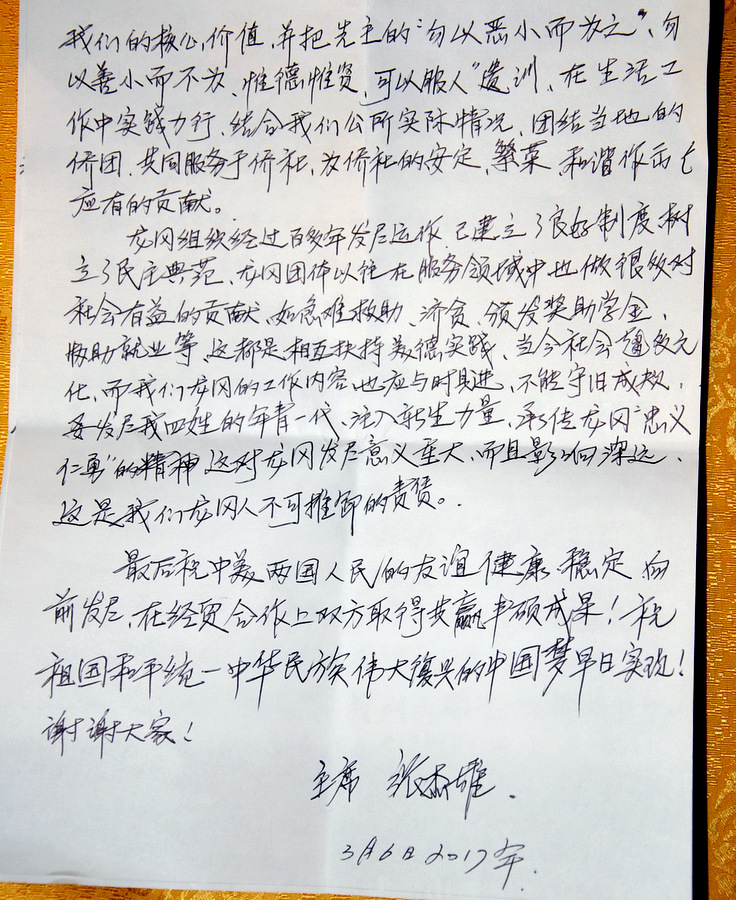 我们的核心价值,并把先主的“勿以恶小而为之”、勿
以善小而不为、惟德惟贤、可以服人“遗训、在生活工
作中实践力行、结合我们公所实际情况、团结当地的
侨团、共同服务于侨社、为侨社的安定、繁荣、和谐作出
应有的贡献。
龙冈组织经过百多年发展运作、已建立了良好制度、树
立了民主典范、龙冈团体以往在服务领域中也做很多对
社会有益的贡献、如急难救助、济贫、颁发奖助学金、
救助就业等、这都是相互扶持美德实践、当今社会多元
化、而我们龙冈的工作内容、也应与时具进、不能守旧成规、
发展我四姓的年青一代、注入新生力量、承传龙冈“忠义
仁勇”的精神、这对龙冈发展意义重大、而且影响深远、
这是我们龙冈人不可推卸的责任。
最后祝中美两国人民的友谊健康、稳定向
前发展、在经贸合作上双方取得共赢丰硕成果!祝
祖国和平统一中华民族伟大復兴的中国梦早日实现!
谢谢大家!
主席 张杰雄.
3月6日2017年.